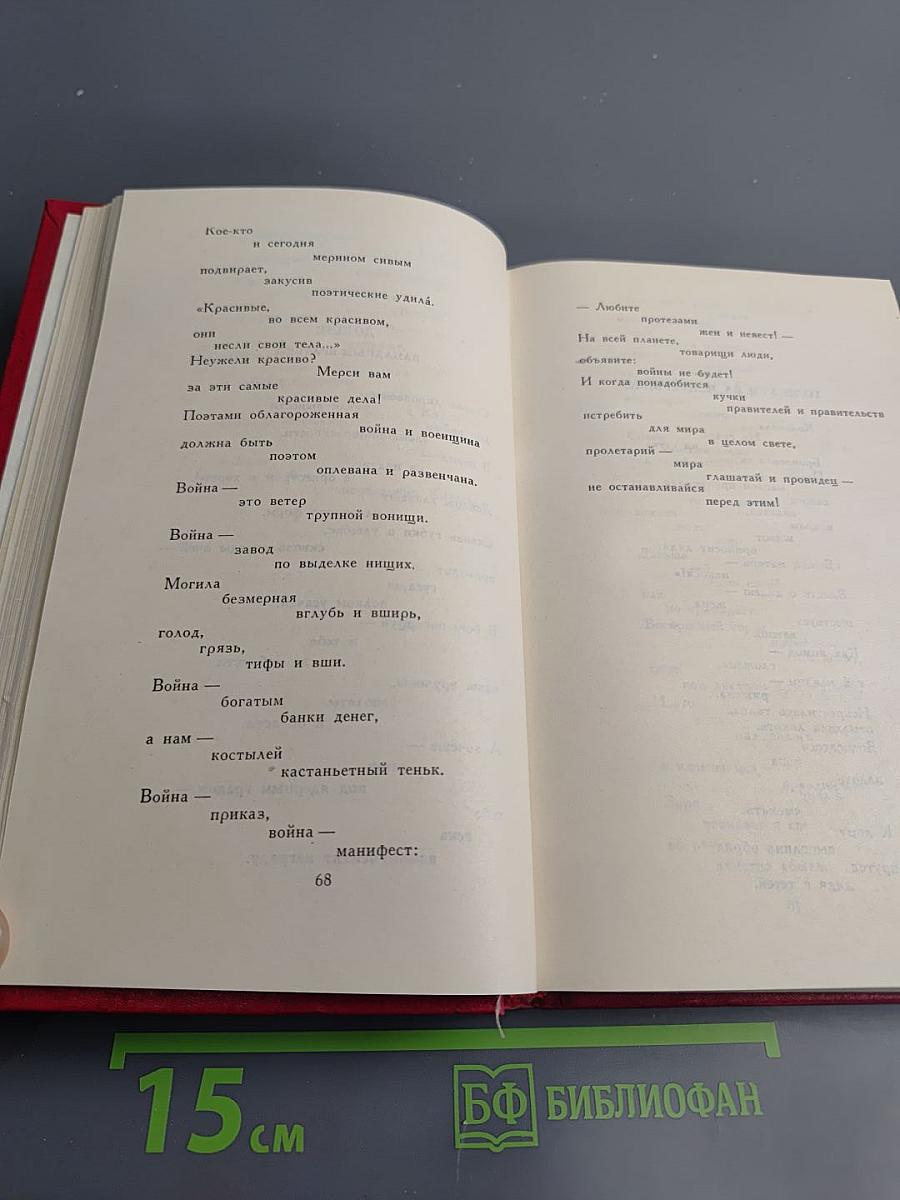 Кое-кто
и сегодня
мерином сивым
подвирает,
закусив
поэтические удила́.
«Красивые,
во всем красивом,
они
несли свои тела...»
Неужели красиво?
Мерси вам
за эти самые
красивые дела!
Поэтами облагороженная
война и военщина
должна быть
поэтом
оплевана и развенчана.
Война —
это ветер
трупной вонищи.
Война —
завод
по выделке нищих.
Могила
безмерная
вглубь и вширь,
голод,
грязь,
тифы и вши.
Война —
богатым
банки денег,
а нам —
костылей
кастаньетный теньк.
Война —
приказ,
война —
манифест:
68
— Любите
протезами
жен и невест! —
На всей планете,
товарищи люди,
объявите:
войны не будет!
И когда понадобится
кучки
правителей и правительств
истребить
для мира
в целом свете,
пролетарий —
мира
глашатай и провидец —
не останавливайся
перед этим!
15 см
БФ БИБЛИОФАН